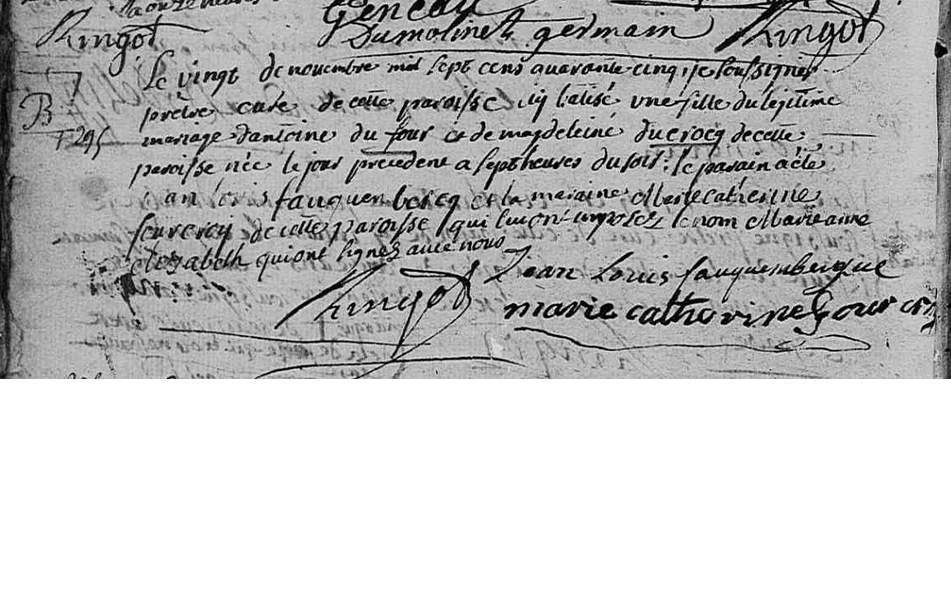 Geneau
Ringot Dumolinet germain Ringot
Le vingt de novembre mil sept cens quarante cinq, je soussigner
B prêtre curé de cette paroisse ay batisé une fille du legitime
295 mariage d'antoine du four et de magdeleine ducrocq de cette
paroisse née le jour precedent a sept heures du soir: le parain a été
jan louis fauquembercq et la maraine Marie catherine
de cette paroisse qui lui ont imposez le nom Marie anne
elizabeth qui ont signez avec nous
Jean Louis fauquembergue
Ringot marie catherine